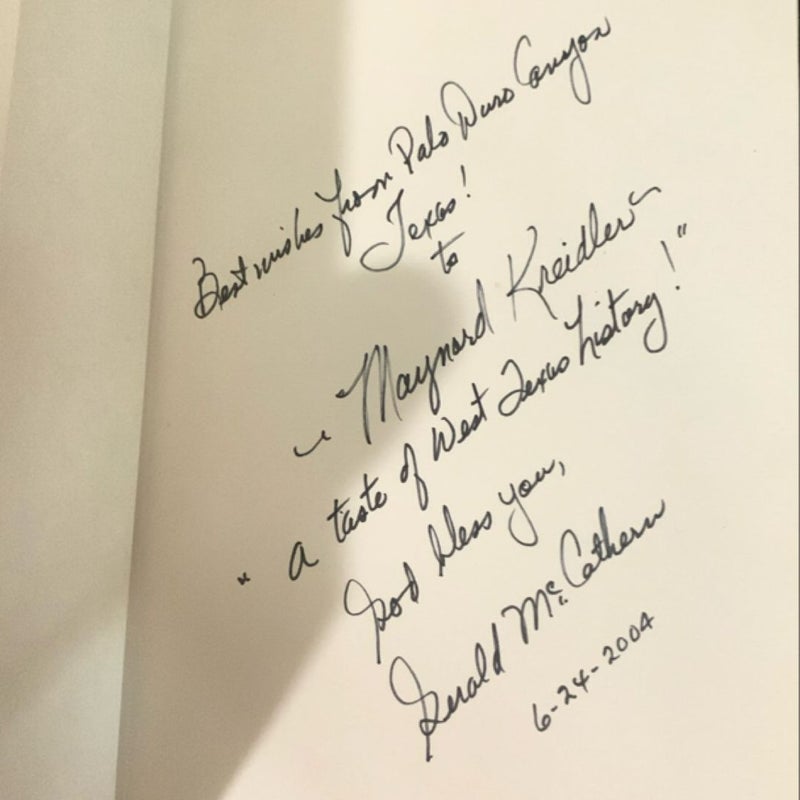 Best wishes from Palo Duro Canyon
Texas!
to
~ Maynard Kreidler ~
"a taste of West Texas history!"
God bless you,
Gerald McCathern
6-24-2004